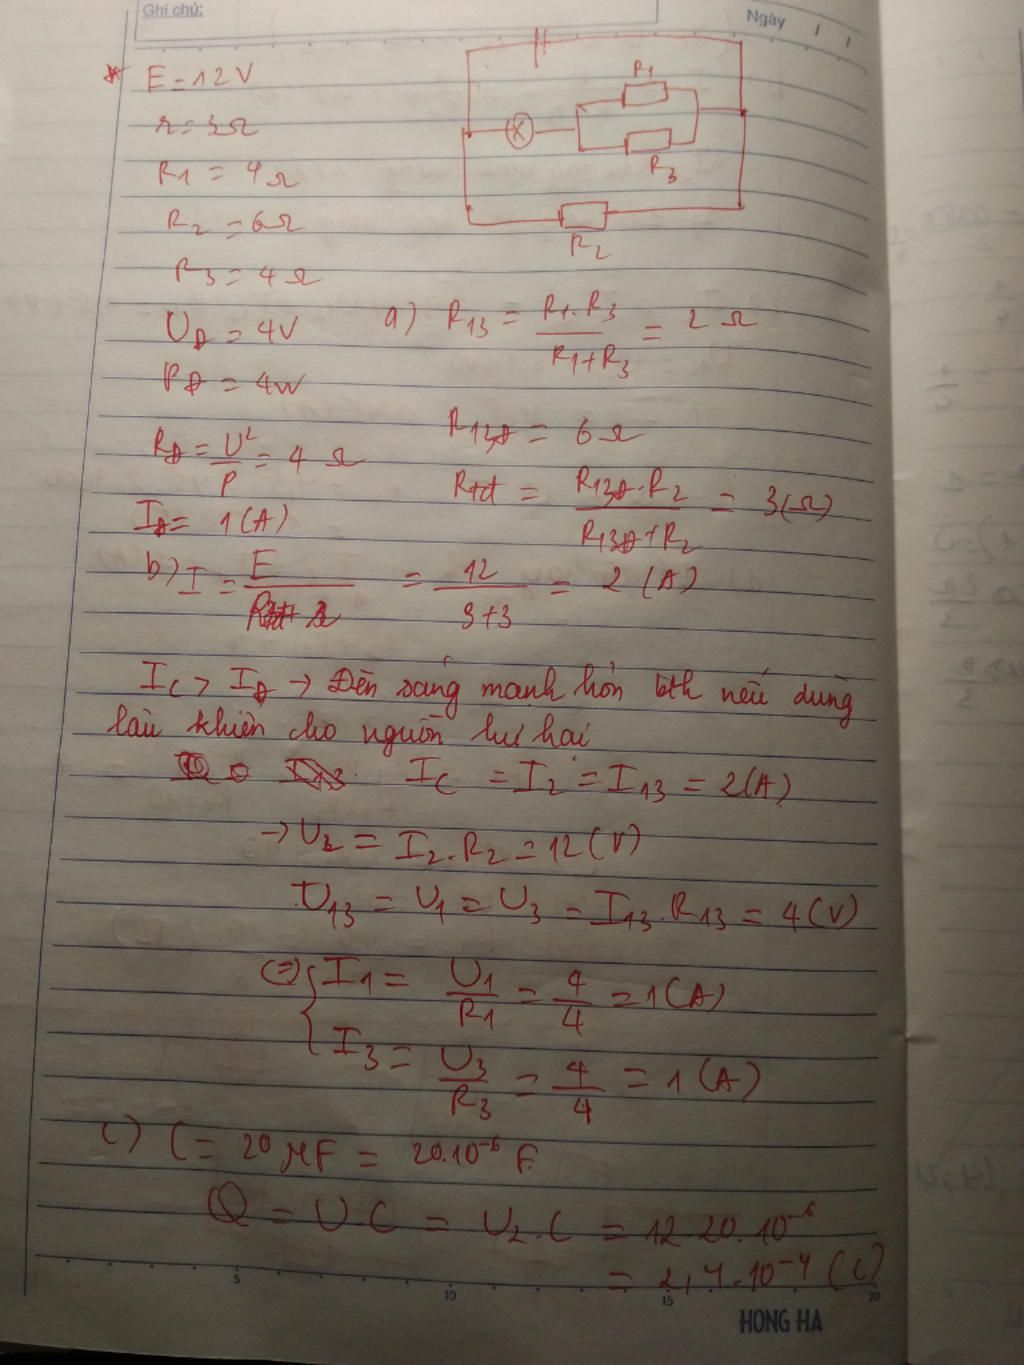 Ghi chú:
Ngày
* E = 12V
r = 3Ω
R1 = 4Ω
R2 = 6Ω
R3 = 4Ω
UĐ = 4V
PĐ = 4W
RĐ = U²/P = 4Ω
IĐ = 1(A)
R1
R3
R2
a) R13 = R1.R3/R1+R3 = 2Ω
R13Đ = 6Ω
Rtđ = R13Đ.R2/R13Đ+R2 = 3(Ω)
b) I = E/Rtđ+r = 12/3+3 = 2(A)
IC > IĐ → Đèn sáng mạnh hơn bth nếu dùng
lâu khiến cho nguồn hư hại
IC = I2 = I13 = 2(A)
→ U2 = I2.R2 = 12(V)
U13 = U1 = U3 = I13.R13 = 4(V)
(=) { I1 = U1/R1 = 4/4 = 1(A)
I3 = U3/R3 = 4/4 = 1(A)
c) C = 20μF = 20.10⁻⁶ F
Q = U.C = U2.C = 12.20.10⁻⁶
= 2,4.10⁻⁴ (C)
5 10 15 20
HONG HA